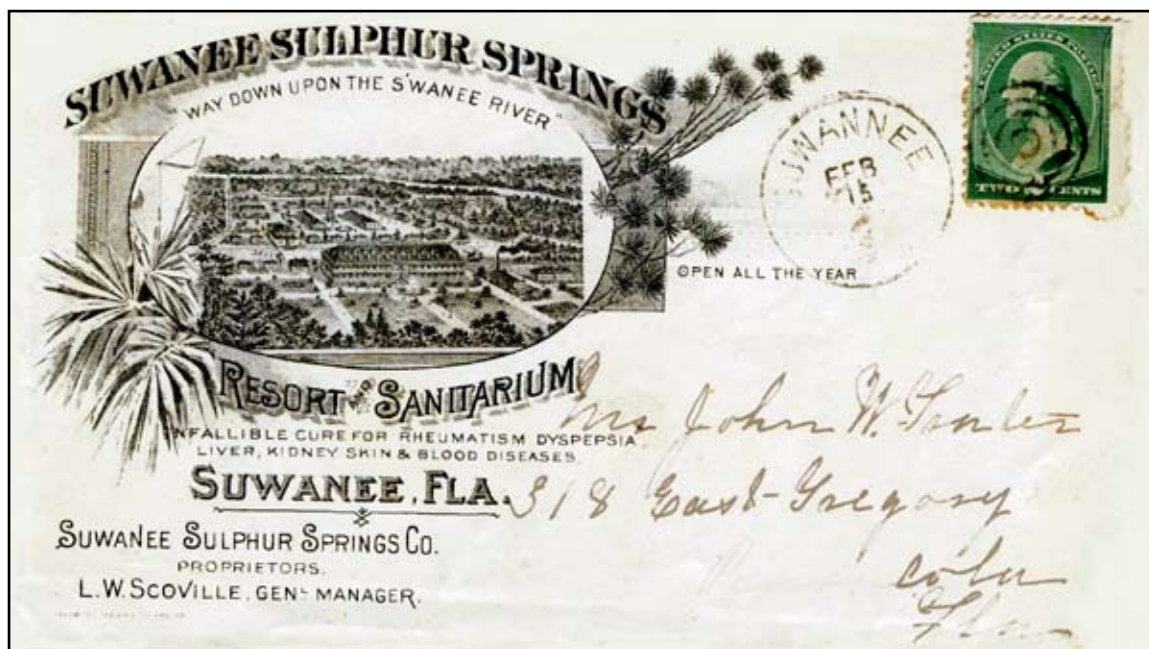 SUWANEE SULPHUR SPRINGS
"WAY DOWN UPON THE S'WANEE RIVER"
UNITED STATES POSTAGE
TWO CENTS
SUWANNEE
FEB
15
OPEN ALL THE YEAR
RESORT AND SANITARIUM
INFALLIBLE CURE FOR RHEUMATISM DYSPEPSIA
LIVER, KIDNEY SKIN & BLOOD DISEASES.
SUWANEE, FLA.
SUWANEE SULPHUR SPRINGS CO.
PROPRIETORS.
L.W. SCOVILLE, GENL MANAGER.
John W.
318 East Gregory
cola
Fla